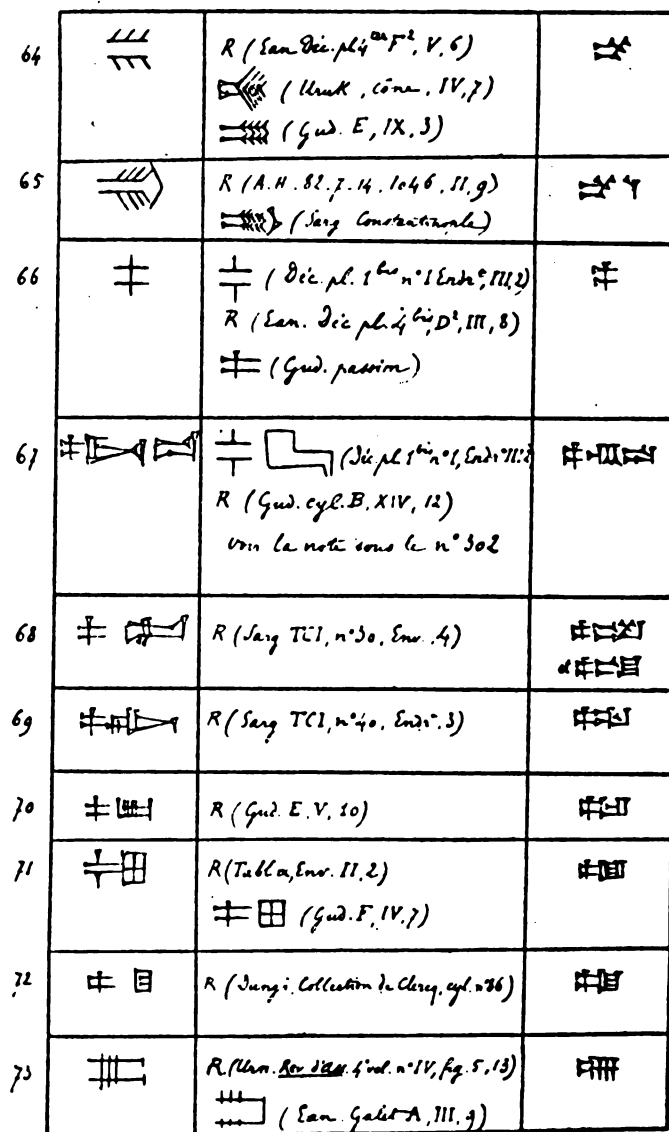 64
R (Ean. Déc. pl. 4 ter F², V, 6)
(Uruk, cône, IV, 7)
(Gud. E, IX, 3)
65
R (A.H. 82.7.14.1046, II, 9)
(Sarg Constantinople)
66
(Déc. pl. 1 bis n° I Endr, III, 2)
R (Ean. Déc pl. 4 bis, D², III, 8)
(Gud. passim)
67
(Déc. pl. 1 bis n° I, Endr II
R (Gud. cyl. B, XIV, 12)
voir la note sous le n° 302
68
R (Sarg TCI, n° 30, Env. 4)
et
69
R (Sarg TCI, n° 40, Endr. 3)
70
R (Gud. E. V, 10)
71
R (Tabl a, Env. II, 2)
(Gud. F, IV, 7)
72
R (Dungi, Collection de Clercq, cyl. n° 86)
73
R (Urn. Rev d'Ass. 4e vol. n° IV, fig. 5, 13)
(Ean. Galet A, III, 9)